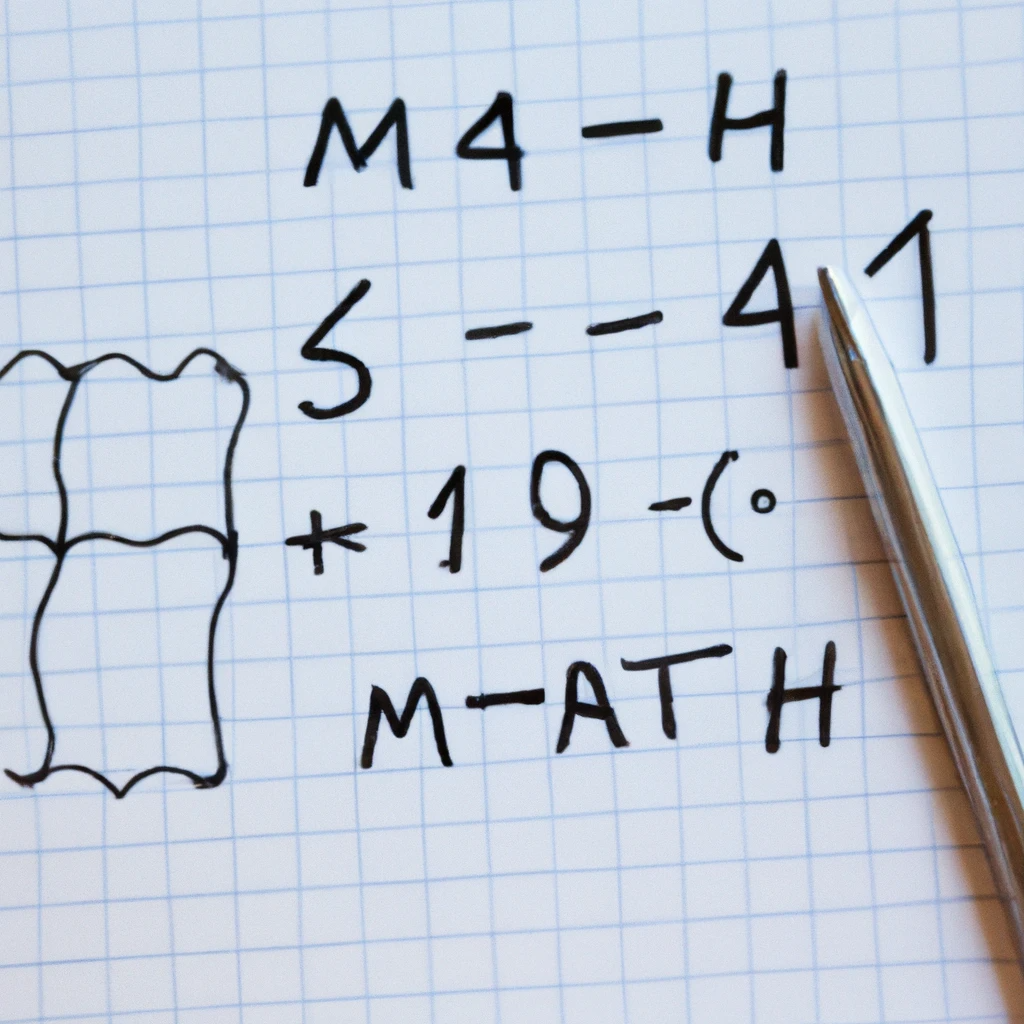 M4-H
S--41
+19-(°
M-ATH